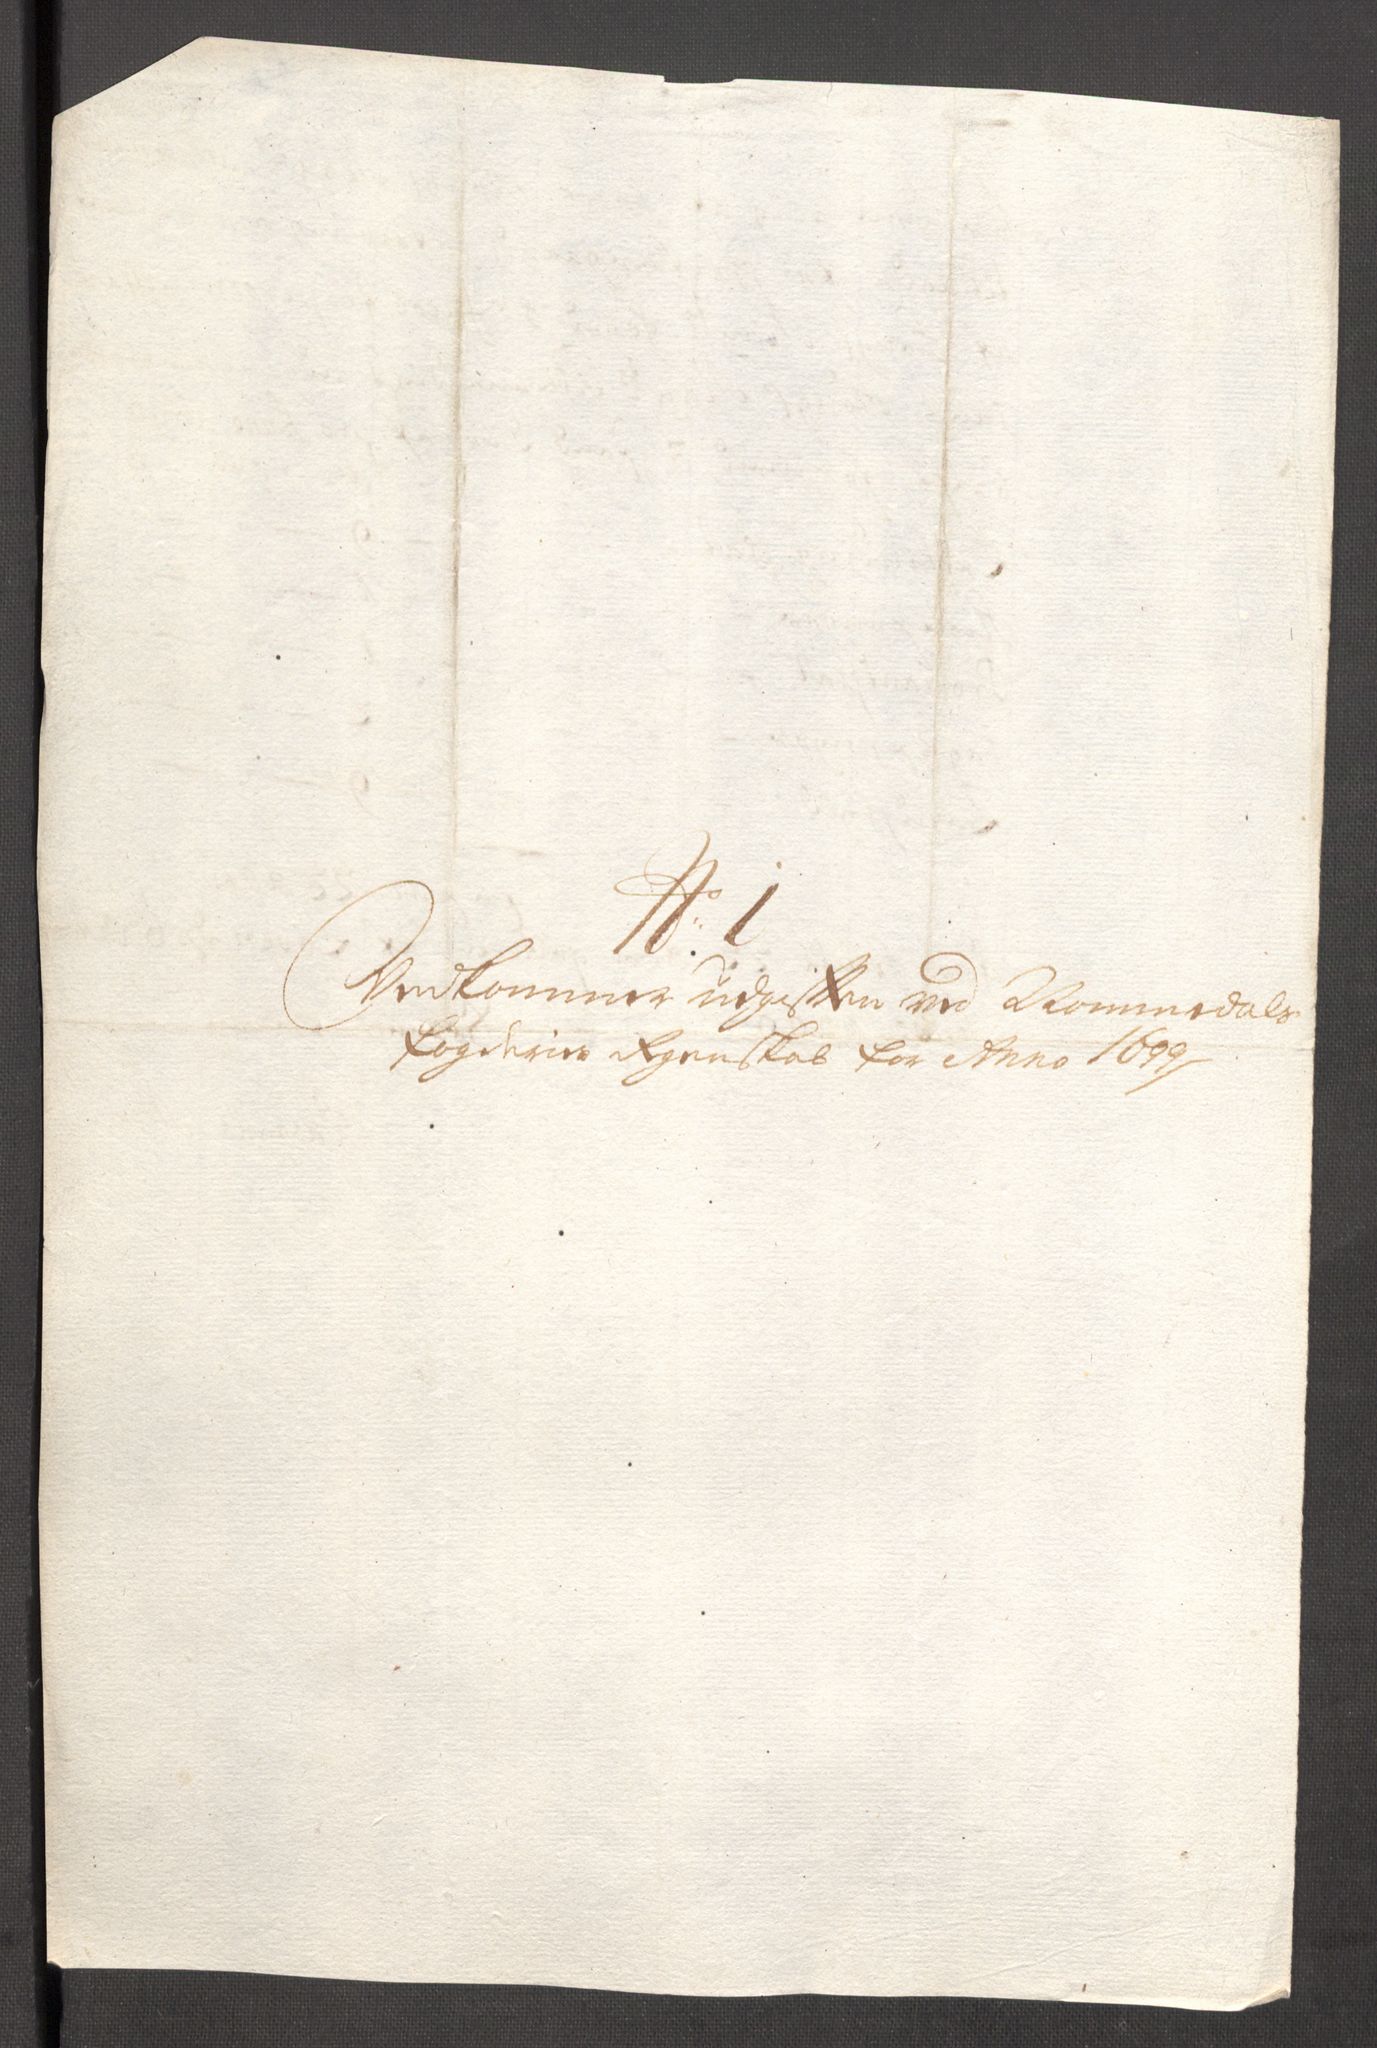 No. 1
Vedkommer udgiften ved Rommsdals
fogderies Regenskab for Anno 1699